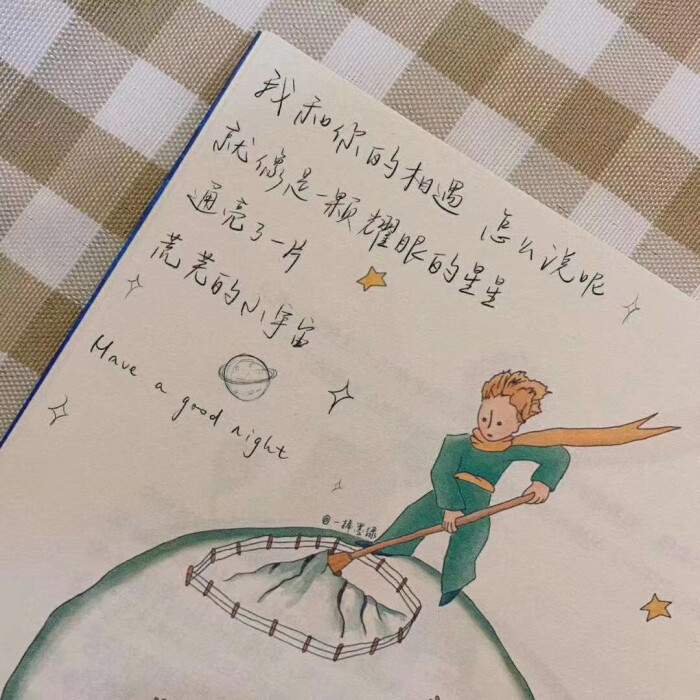 我和你的相遇 怎么说呢
就像是一颗耀眼的星星
通亮了一片
荒芜的小宇宙
Have a good night
@一抹墨绿